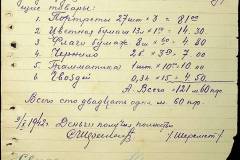 щие товары:
1. Портреты 27 шт × 3 = 81.00
2. Цветная бумага 13 л × 1¹⁰ = 14.30
3. Флаги бумаж. 8 ш × 0.60 = 4.80
4. Чернило 2 б × 3.50 = 7.00
5. Грамматика 1 шт × 10- = 10.00
6. Гвоздей 0,3 к × 15 = 4.50
Всего = 121 м 60 пф.
Всего сто двадцать одна м. 60 пф.
9/X 1942. Деньги получил полностью
/Шеремет/